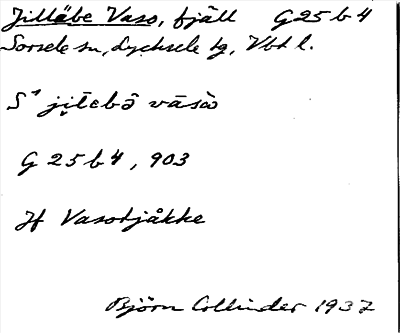 Jillābe Vaso, fjäll G 25 b 4
Sorsele sn, Lycksele lg, Vbtl.
G 25 b 4, 903
Jf Vasotjåkke
Björn Collinder 1937